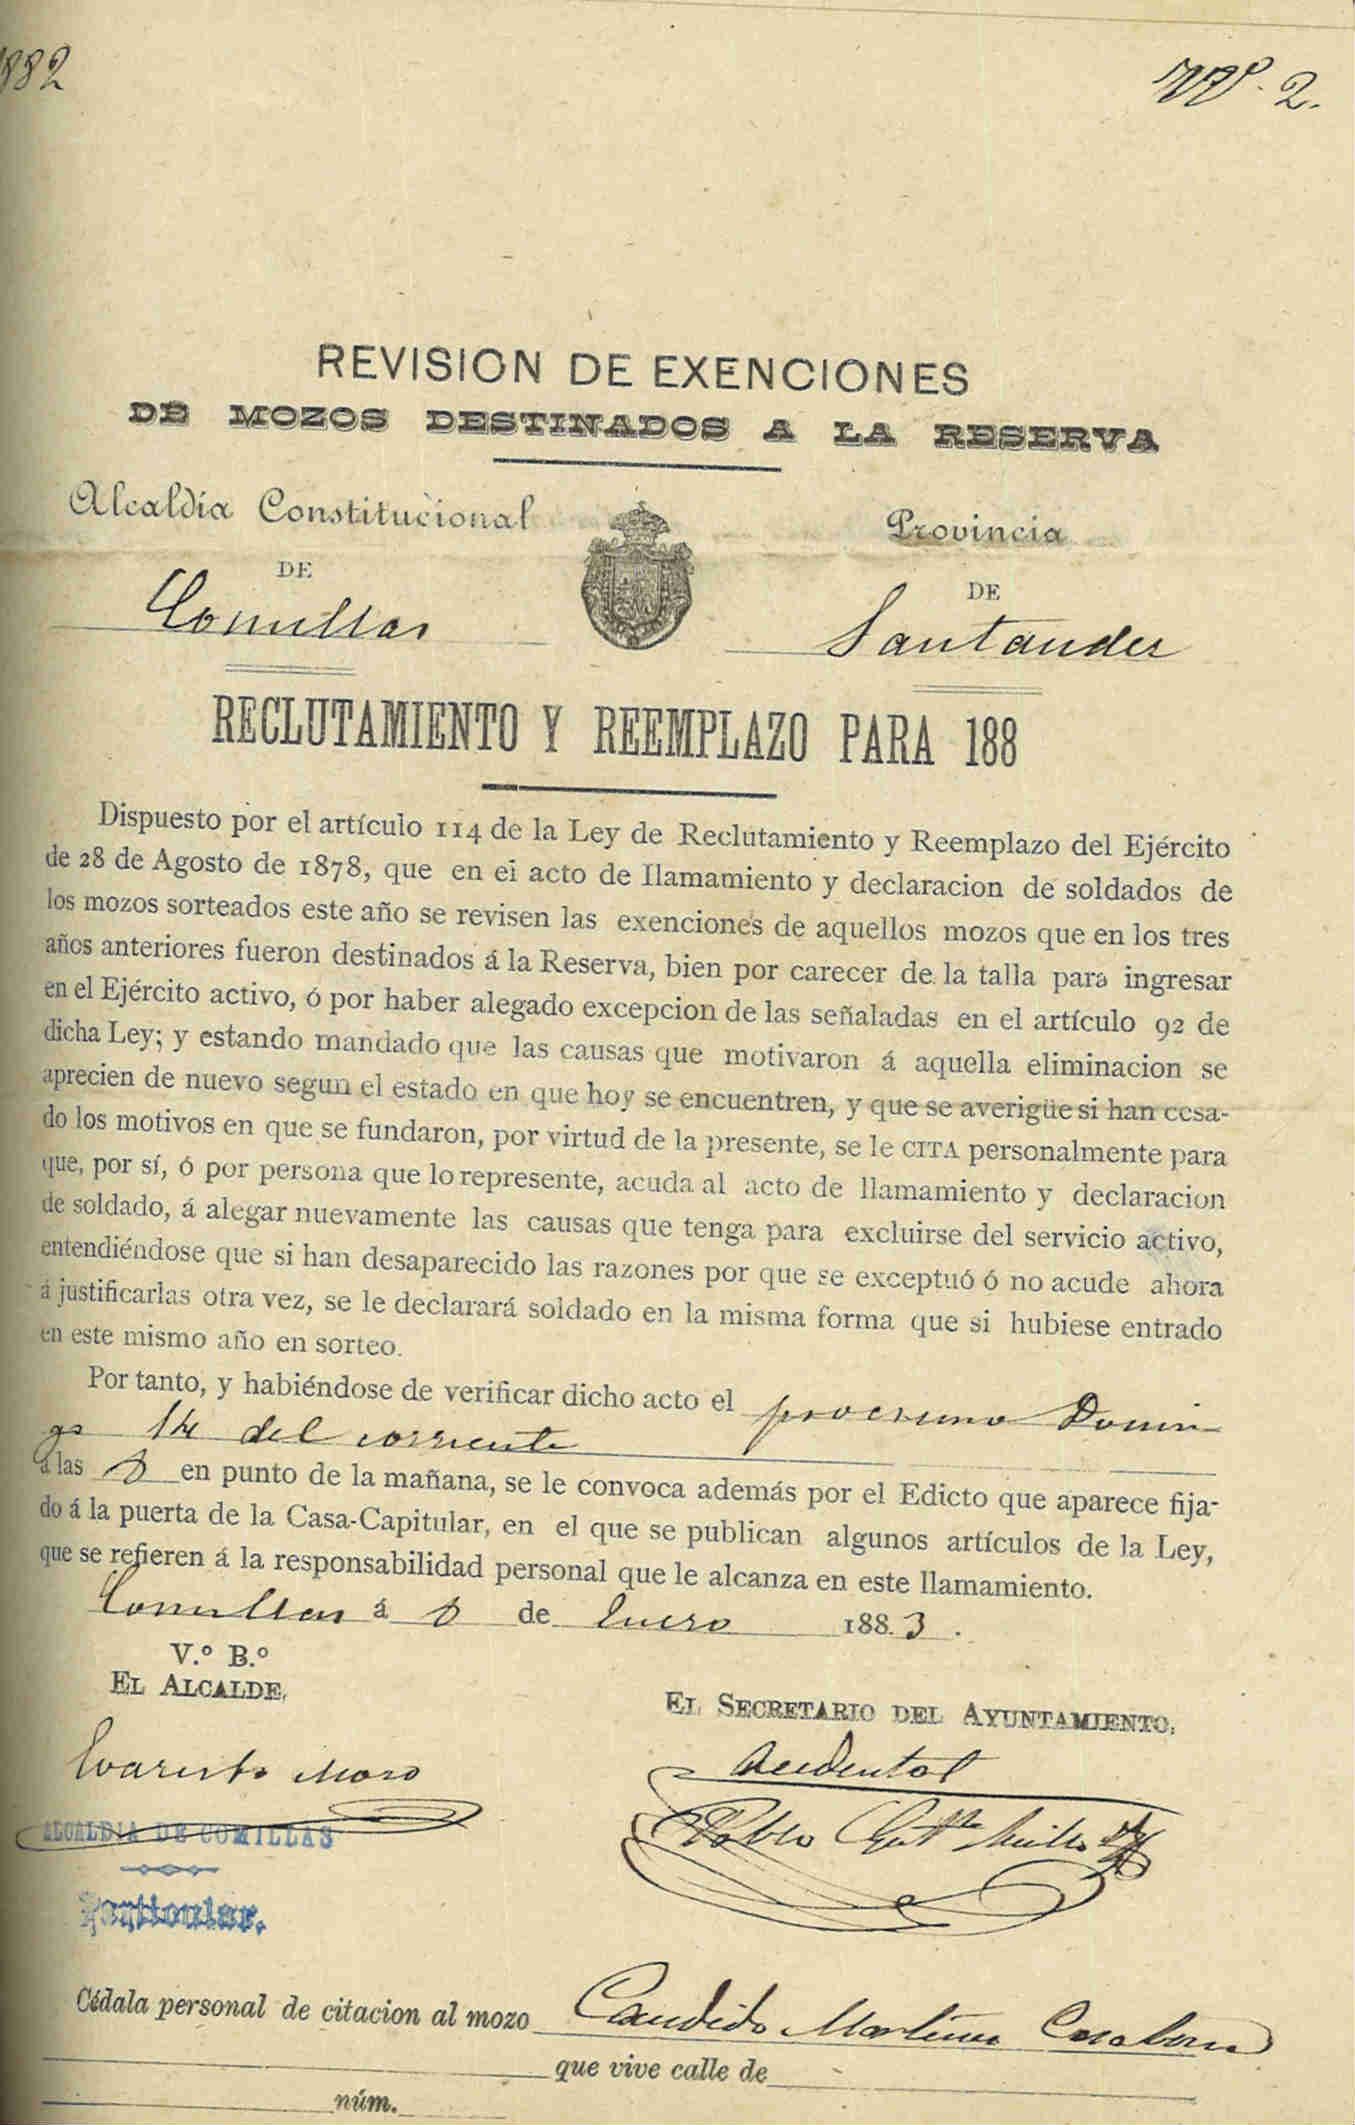 1882
Nº 2.
REVISION DE EXENCIONES
DE MOZOS DESTINADOS A LA RESERVA
Alcaldía Constitucional
DE
Comillas
Provincia
DE
Santander
RECLUTAMIENTO Y REEMPLAZO PARA 188
Dispuesto por el artículo 114 de la Ley de Reclutamiento y Reemplazo del Ejército
de 28 de Agosto de 1878, que en el acto de llamamiento y declaracion de soldados de
los mozos sorteados este año se revisen las exenciones de aquellos mozos que en los tres
años anteriores fueron destinados á la Reserva, bien por carecer de la talla para ingresar
en el Ejército activo, ó por haber alegado excepcion de las señaladas en el artículo 92 de
dicha Ley; y estando mandado que las causas que motivaron á aquella eliminacion se
aprecien de nuevo segun el estado en que hoy se encuentren, y que se averigüe si han cesa-
do los motivos en que se fundaron, por virtud de la presente, se le CITA personalmente para
que, por sí, ó por persona que lo represente, acuda al acto de llamamiento y declaracion
de soldado, á alegar nuevamente las causas que tenga para excluirse del servicio activo,
entendiéndose que si han desaparecido las razones por que se exceptuó ó no acude ahora
á justificarlas otra vez, se le declarará soldado en la misma forma que si hubiese entrado
en este mismo año en sorteo.
Por tanto, y habiéndose de verificar dicho acto el procsimo Domin
go 14 del corriente
á las 8 en punto de la mañana, se le convoca además por el Edicto que aparece fija-
do á la puerta de la Casa-Capitular, en el que se publican algunos artículos de la Ley,
que se refieren á la responsabilidad personal que le alcanza en este llamamiento.
Comillas á 8 de Enero 1883.
V.º B.º
EL ALCALDE,
Evaristo Moro
ALCALDIA DE COMILLAS
Particular.
EL SECRETARIO DEL AYUNTAMIENTO,
Accidental
Pablo
Cédala personal de citacion al mozo Candido Martinez
que vive calle de
núm.